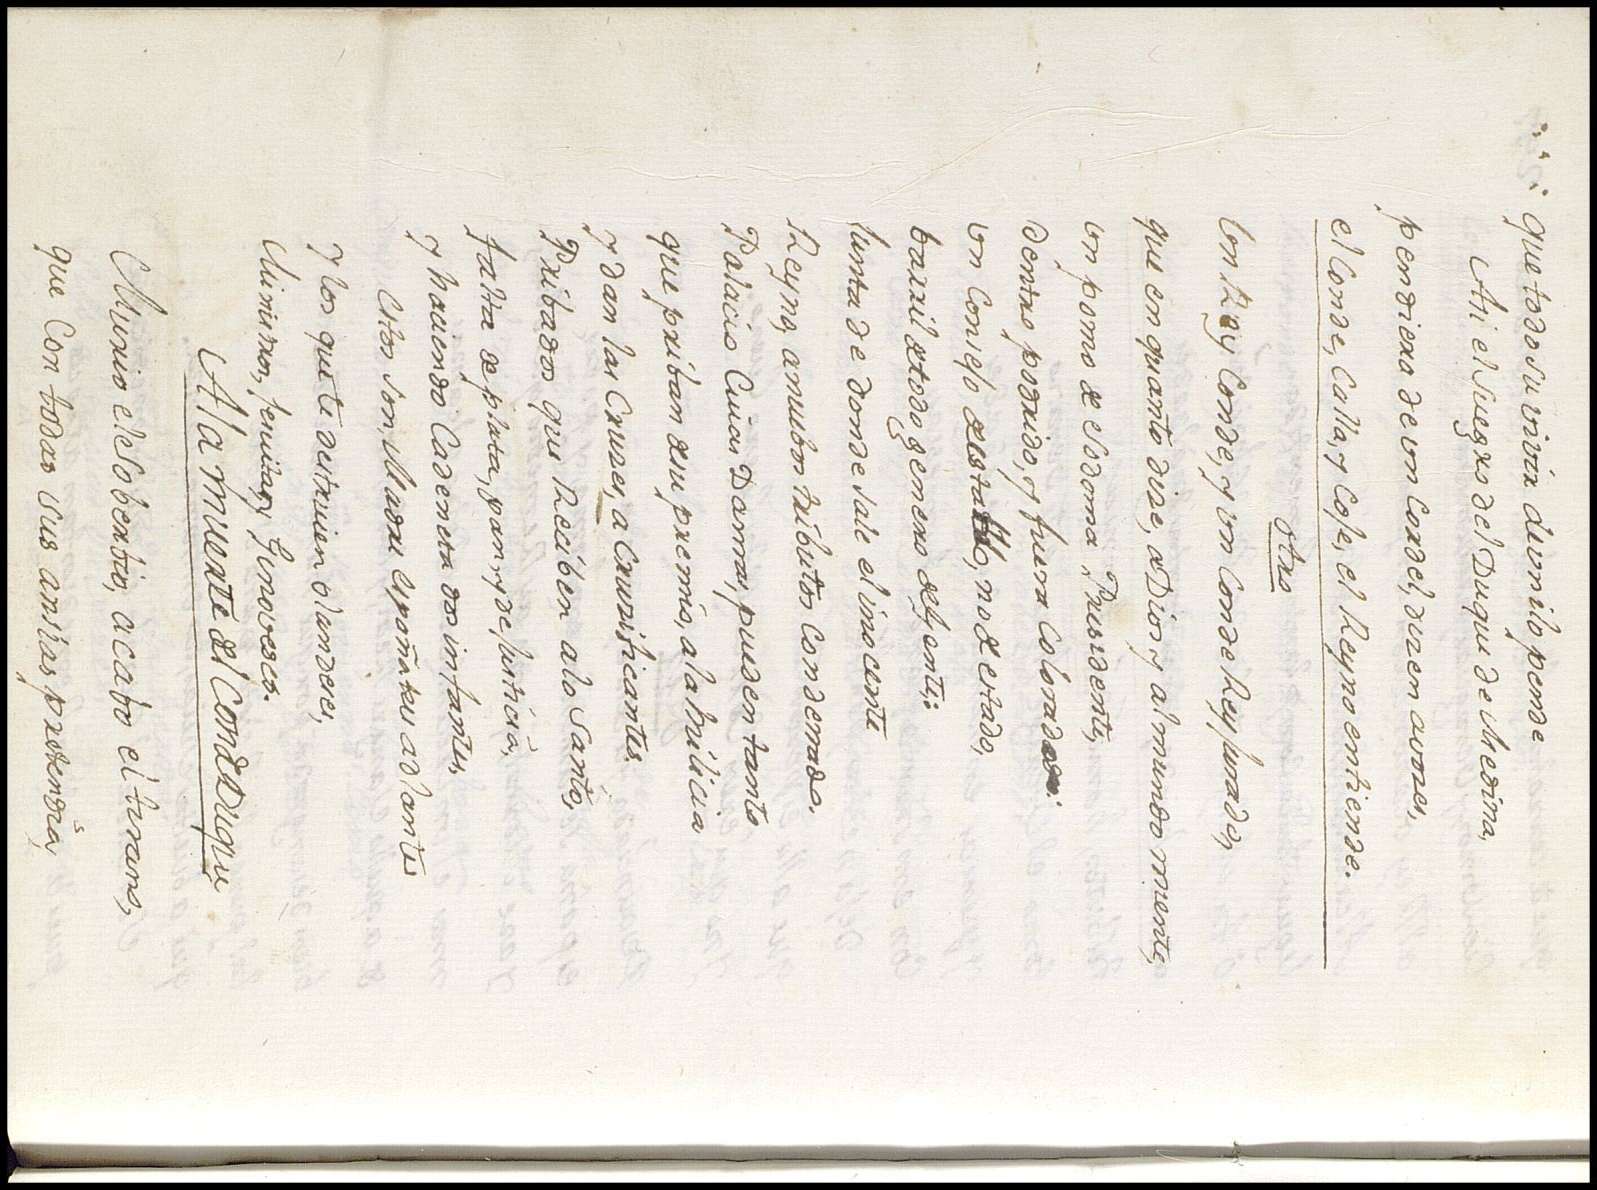 que todo su vivir dixmilo pende
Asi el Suegro del Duque de Medina,
pendiera de un Cordel, dizen a vozes,
el Conde, Calla, y Cose, el Reyno entiende.
otro
Un Rey Conde, y un Conde Rey jurado,
que en quanto dize, a Dios y al mundo miente,
un pomo de Sodoma, Presidente,
dentro podrido, y fuera Colorado:
un Consejo de estado, no de estado,
barril de todo genero de gente;
Junta de donde sale el inocente
Reyno, a nuebos tributos Condenado.
Palacio Cuias Damas, pueden tanto
que priban de su premio, a la milicia
y dan las Cruces, a Crucificantes.
Pribados que Reciben a lo Santo,
falta de plata, pan, y de Justicia,
y haciendo Cadeneta los infantes,
Estos son, Madre España tus adlantes
y los que te destruien Flandes,
Ministros, Jenuitas y Ginoveses.
A la muerte del Conde Duque
Murio el Soberbio, acabo el tirano,
que Con todas sus ansias pretendia